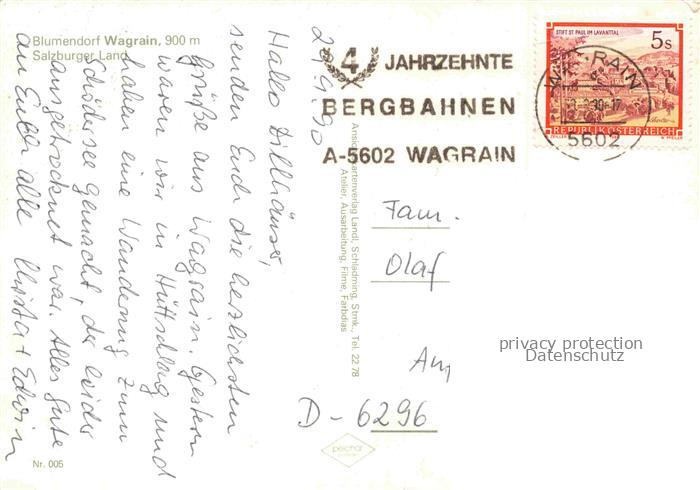 Blumendorf Wagrain, 900 m
Salzburger Land
29.9.90
Hallo Dillhäuser,
senden Euch die herzlichsten
Grüße aus Wagrain. Gestern
waren wir in Hüttschlag und
haben eine Wanderung zum
Schödersee gemacht, der leider
ausgetrocknet war. Alles Gute
an Euch alle Christa + Edwin
Nr. 005
Ansichtskartenverlag Landl, Schladming, Stmk., Tel. 22 78
Atelier, Ausarbeitung, Filme, Farbdias
4 JAHRZEHNTE
BERGBAHNEN
A-5602 WAGRAIN
STIFT ST. PAUL IM LAVANTTAL
5 S
REPUBLIK ÖSTERREICH
5602
Fam.
Olaf
Am
D-6296
privacy protection
Datenschutz